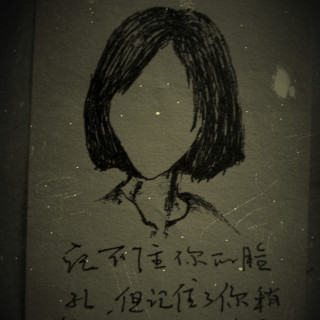 记不住你的脸
孔,但记住了你稍